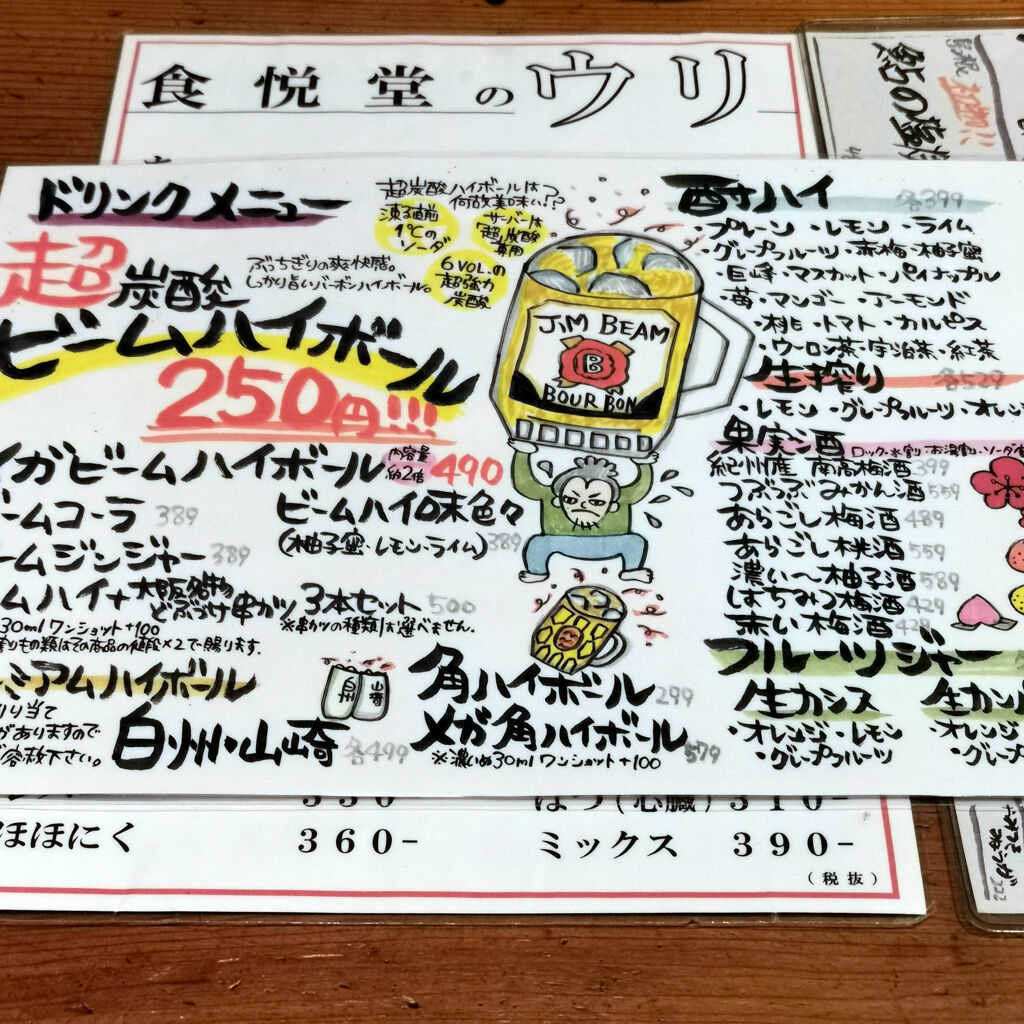 食悦堂のウリ
ドリンクメニュー
超炭酸ハイボールは
何故美味い!?
凍る直前
1℃の
ソーダ
サーバーは
超炭酸
専用
6VOL.の
超強力
炭酸
ぶっちぎりの爽快感。
しっかり旨いバーボンハイボール。
超炭酸
ビームハイボール
250円!!!
JIM BEAM
B
BOURBON
ガビームハイボール 内容量約2倍 490
ームコーラ 389
ームジンジャー 389
ビームハイ味色々
(柚子蜜・レモン・ライム) 389
ムハイ+大阪名物どぶづけ串カツ 3本セット 500
30ml ワンショット+100
※串カツの種類はお選べません。
もの類はその商品の値段×2で賜ります。
ミアムハイボール
り当て
がありますので
容赦下さい。
白州
山崎
白州・山崎 各499
角ハイボール 299
メガ角ハイボール 579
※濃いめ30ml ワンショット+100
酎ハイ 各399
・プレーン ・レモン ・ライム
・グレープフルーツ ・赤梅 ・柚子蜜
・巨峰 ・マスカット ・パイナップル
・苺 ・マンゴー ・アーモンド
・桃 ・トマト ・カルピス
・ウーロン茶 ・宇治茶 ・紅茶
生搾り 各529
・レモン ・グレープフルーツ ・オレン
果実酒 ロック・水割り・お湯割り・ソーダ
紀州産 南高梅酒 399
つぶつぶみかん酒 559
あらごし梅酒 489
あらごし桃酒 559
濃い〜柚子酒 589
はちみつ梅酒 429
赤い梅酒 429
フルーツジャー
生カシス
・オレンジ ・レモン
・グレープフルーツ
生カン
・オレンジ
・グレープ
330 はつ(心臓) 310-
ほほにく 360- ミックス 390-
(税抜)